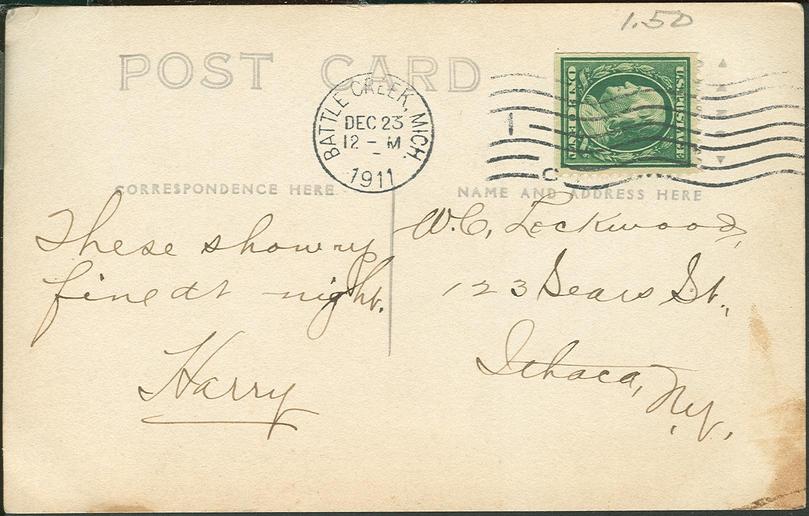 1.50
POST CARD
BATTLE CREEK, MICH.
DEC 23
12 - M
1911
U.S. POSTAGE
ONE CENT
CORRESPONDENCE HERE
NAME AND ADDRESS HERE
These show up
fine at night.
Harry
W.C. Lockwood,
123 Sears St.,
Ithaca,
N.Y.